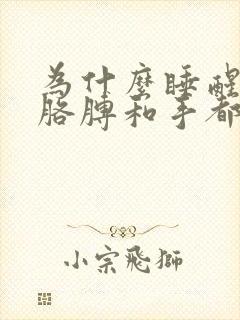 为什麼睡醒
胳膊和手都
小宗飛獅